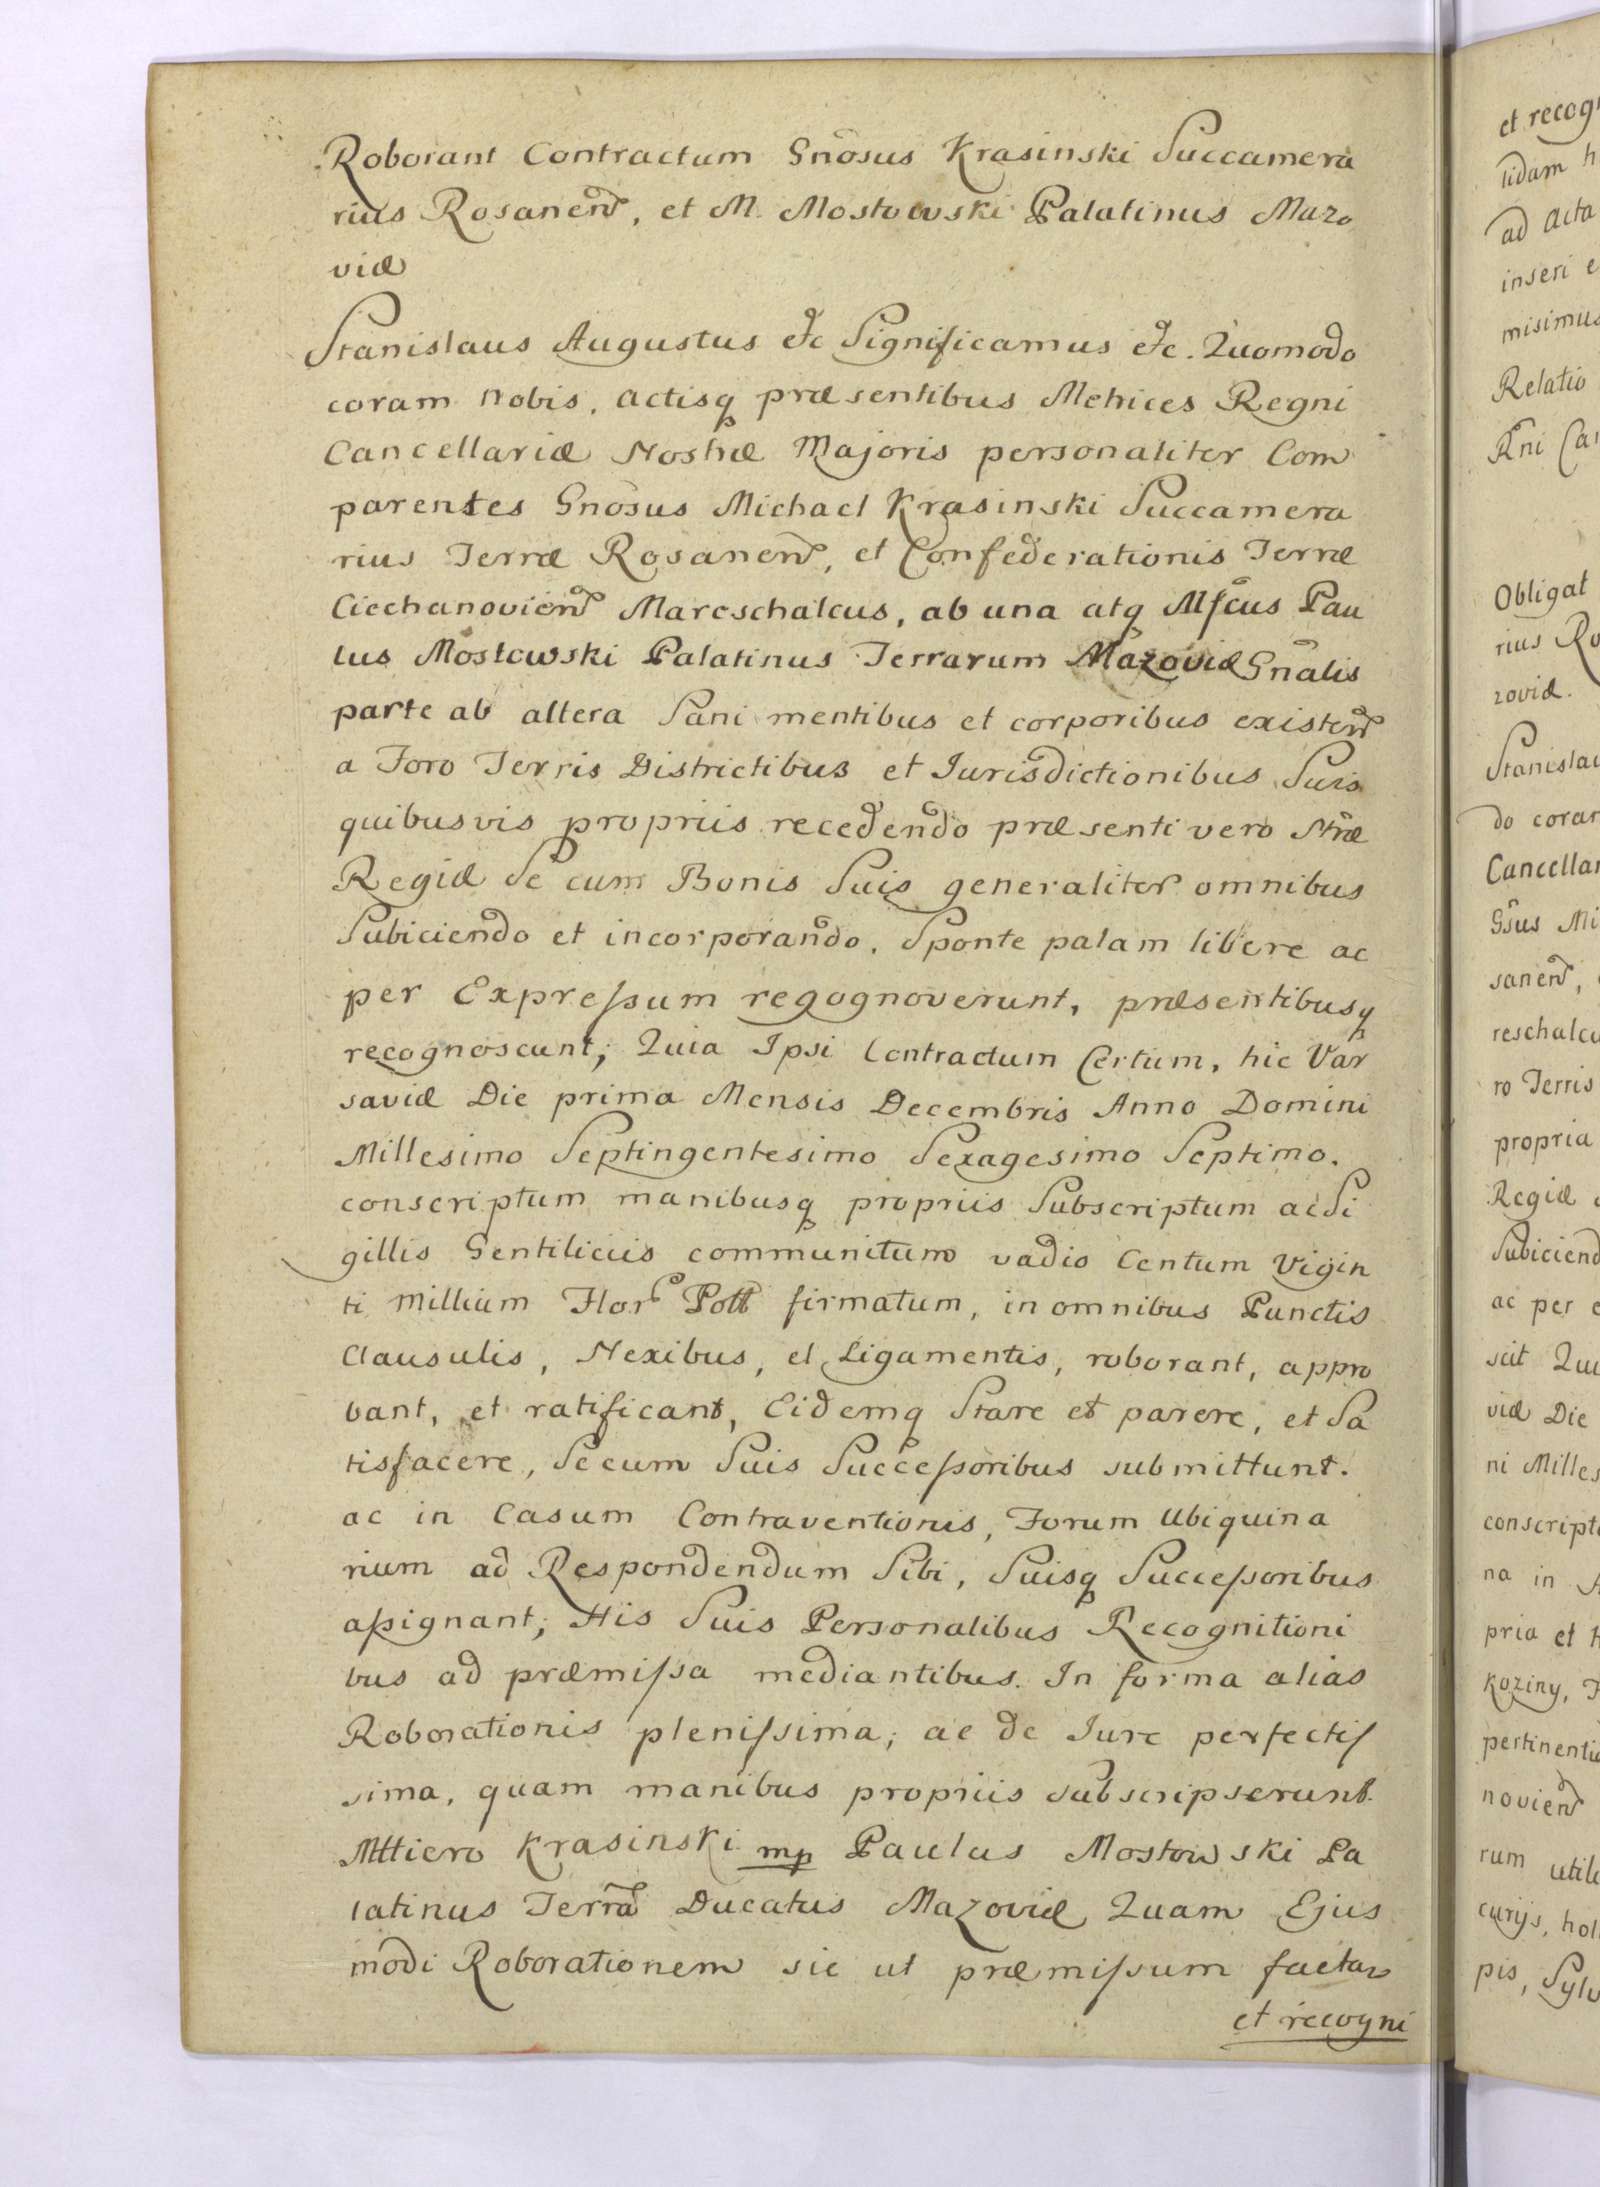 Roborant Contractum Gnosus Krasinski Succamera
rius Rosanens, et M. Mostowski Palatinus Mazo
viæ
Stanislaus Augustus etc Significamus etc. Quomodo
coram Nobis, Actisq præsentibus Metrices Regni
Cancellariæ Nostræ Majoris personaliter Com
parentes Gnosus Michael Krasinski Succamera
rius Terræ Rosanens, et Confederationis Terræ
Ciechanoviens Mareschalcus, ab una atq Mfcus Pau
lus Mostowski Palatinus Terrarum Mazoviæ Gnalis
parte ab altera Sani mentibus et corporibus existens
a Foro Terris Districtibus et Jurisdictionibus Suis
quibusvis propriis recedendo præsenti vero Sträe
Regiæ Se cum Bonis Suis generaliter omnibus
Subiciendo et incorporando. Sponte palam libere ac
per Expreſsum regognoverunt, præsentibusq
recognoscunt; Quia Ipsi Contractum Certum, hic Var
saviæ Die prima Mensis Decembris Anno Domini
Millesimo Septingentesimo Sexagesimo Septimo.
conscriptum manibusq propriis Subscriptum ac Si
gillis Gentiliciis communitum vadio Centum Vigin
ti Millium Flor Poll firmatum, in omnibus Punctis
Clausulis, Nexibus, et Ligamentis, roborant, appro
bant, et ratificant, Eidemq Stare et parere, et Sa
tisfacere, Se cum Suis Succeſsoribus submittunt.
ac in Casum Contraventionis, Forum Ubiquina
rium ad Respondendum Sibi, Suisq Succeſsoribus
aſsignant; His Suis Personalibus Recognitioni
bus ad præmiſsa mediantibus. In forma alias
Roborationis pleniſsima, ac de Jure perfectiſ
sima, quam manibus propriis subscripserunt.
Mttiero Krasinski mp Paulus Mostowski Pa
latinus Terra Ducatus Mazoviæ Quam Ejus
modi Roborationem sic ut præmiſsum factam
et recogni
et recogn
tidam h
ad Acta
inseri e
misimus
Relatio
Rni Ca
Obligat
rius Ro
zoviæ.
Stanislau
do coram
Cancellar
Gsus Mi
sanens,
reschalcu
ro Terris
propria
Regiæ
Subiciend
ac per e
scit Qui
viæ Die
ni Milles
conscripto
na in
pria et h
Koziny,
pertinentia
noviens
rum utili
curijs, hol
pis, Sylv